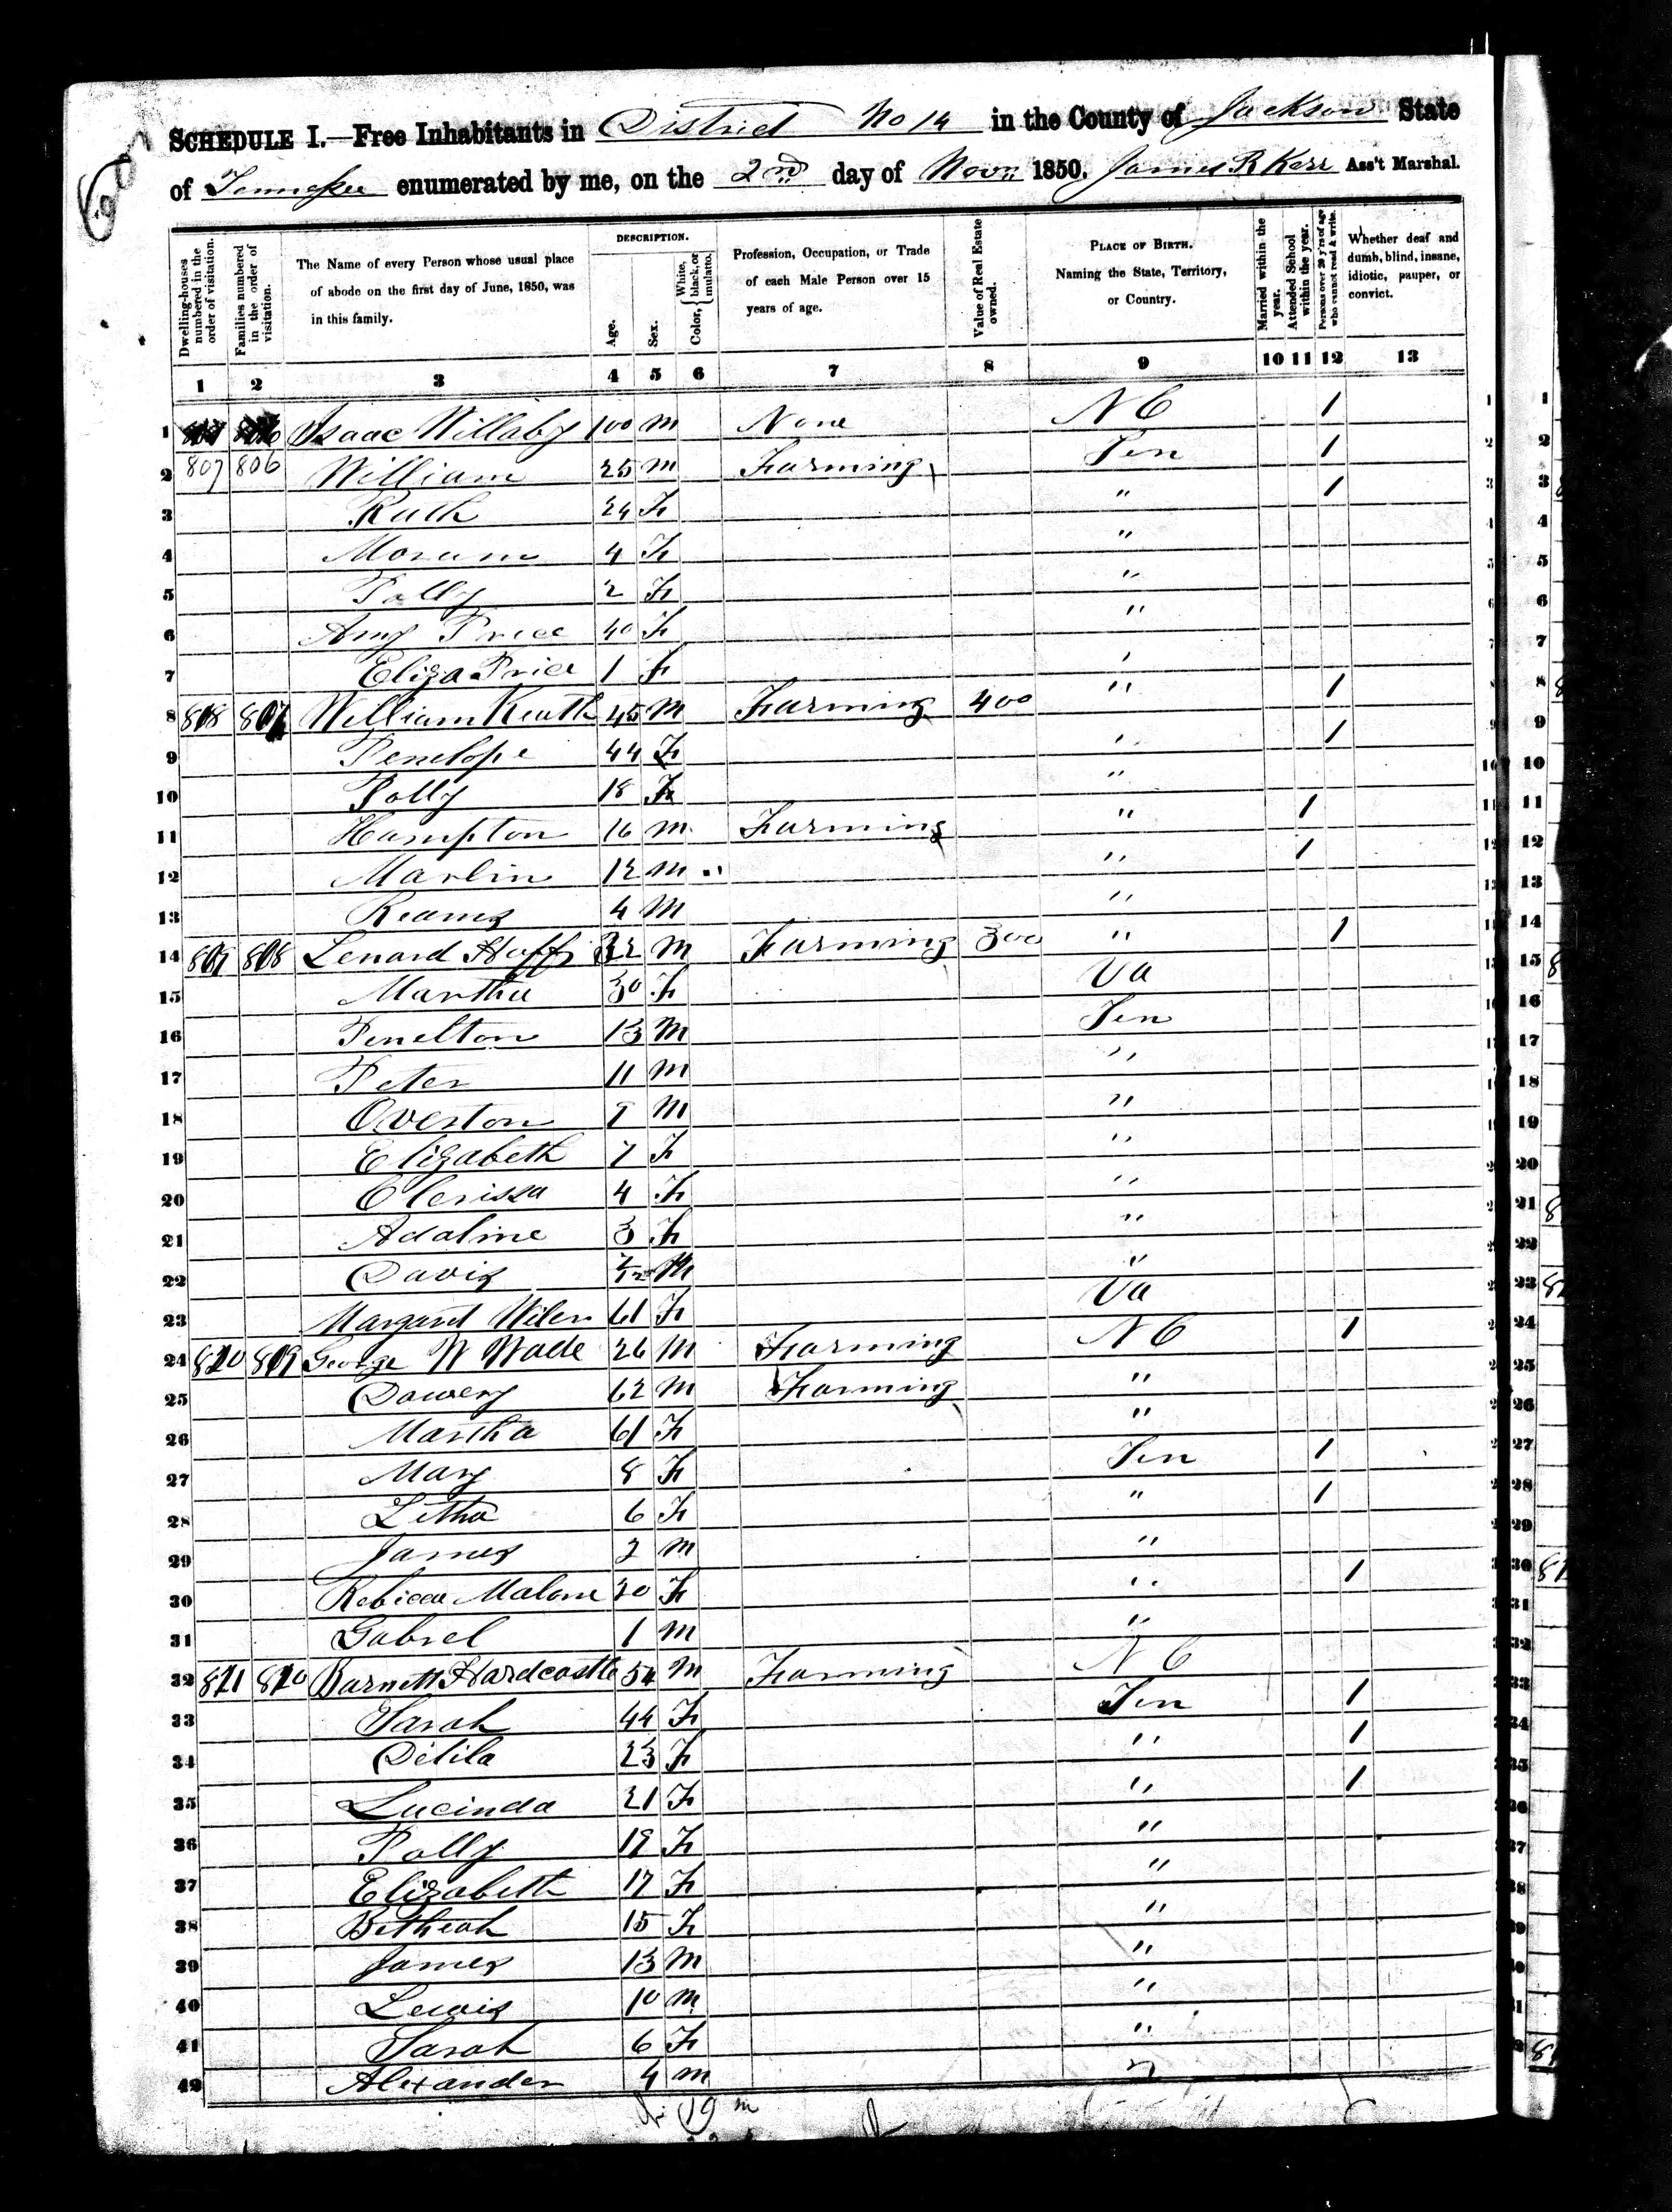 SCHEDULE I.—Free Inhabitants in District No 14 in the County of Jackson State
of Tennessee enumerated by me, on the 2nd day of Nov. 1850. James R Kerr Ass't Marshal.
Dwelling-houses numbered in the order of visitation.
Families numbered in the order of visitation.
The Name of every Person whose usual place of abode on the first day of June, 1850, was in this family.
DESCRIPTION.
Age.
Sex.
Color, White, black, or mulatto.
Profession, Occupation, or Trade of each Male Person over 15 years of age.
Value of Real Estate owned.
PLACE OF BIRTH. Naming the State, Territory, or Country.
Married within the year.
Attended School within the year.
Persons over 20 y'rs of age who cannot read & write.
Whether deaf and dumb, blind, insane, idiotic, pauper, or convict.
1 2 3 4 5 6 7 8 9 10 11 12 13
1 Isaac Willaby 100 M None N C /
2 807 806 William 25 M Farming Ten /
3 Ruth 24 F " /
4 4 F "
5 Polly 2 F "
6 Amy Price 40 F "
7 Eliza Price 1 F "
8 808 807 William Keath 45 M Farming 400 " /
9 Penelope 44 F " /
10 Polly 18 F "
11 Hampton 16 M Farming " /
12 Marlin 12 M " /
13 4 M "
14 809 808 Lenard Huff 32 M Farming 300 " /
15 Martha 30 F Va
16 Penelton 13 M Ten
17 Peter 11 M "
18 Overton M "
19 Elizabeth 7 F "
20 Clerissa 4 F "
21 Adaline 3 F "
22 Davis M "
23 Margaret 61 F Va
24 810 809 George W Wade 26 M Farming N C /
25 Dowery 62 M Farming "
26 Martha 61 F "
27 Mary 8 F Ten /
28 Letha 6 F " /
29 James 2 M "
30 Rebicca Malone 20 F " /
31 Gabrel 1 M "
32 811 810 Barnett Hardcastle 54 M Farming N C
33 Sarah 44 F Ten /
34 Delila 23 F " /
35 Lucinda 21 F " /
36 Polly 19 F "
37 Elizabeth 17 F "
38 Betheah 15 F "
39 James 13 M "
40 Lewis 10 M "
41 Sarah 6 F "
42 Alexander 4 M "